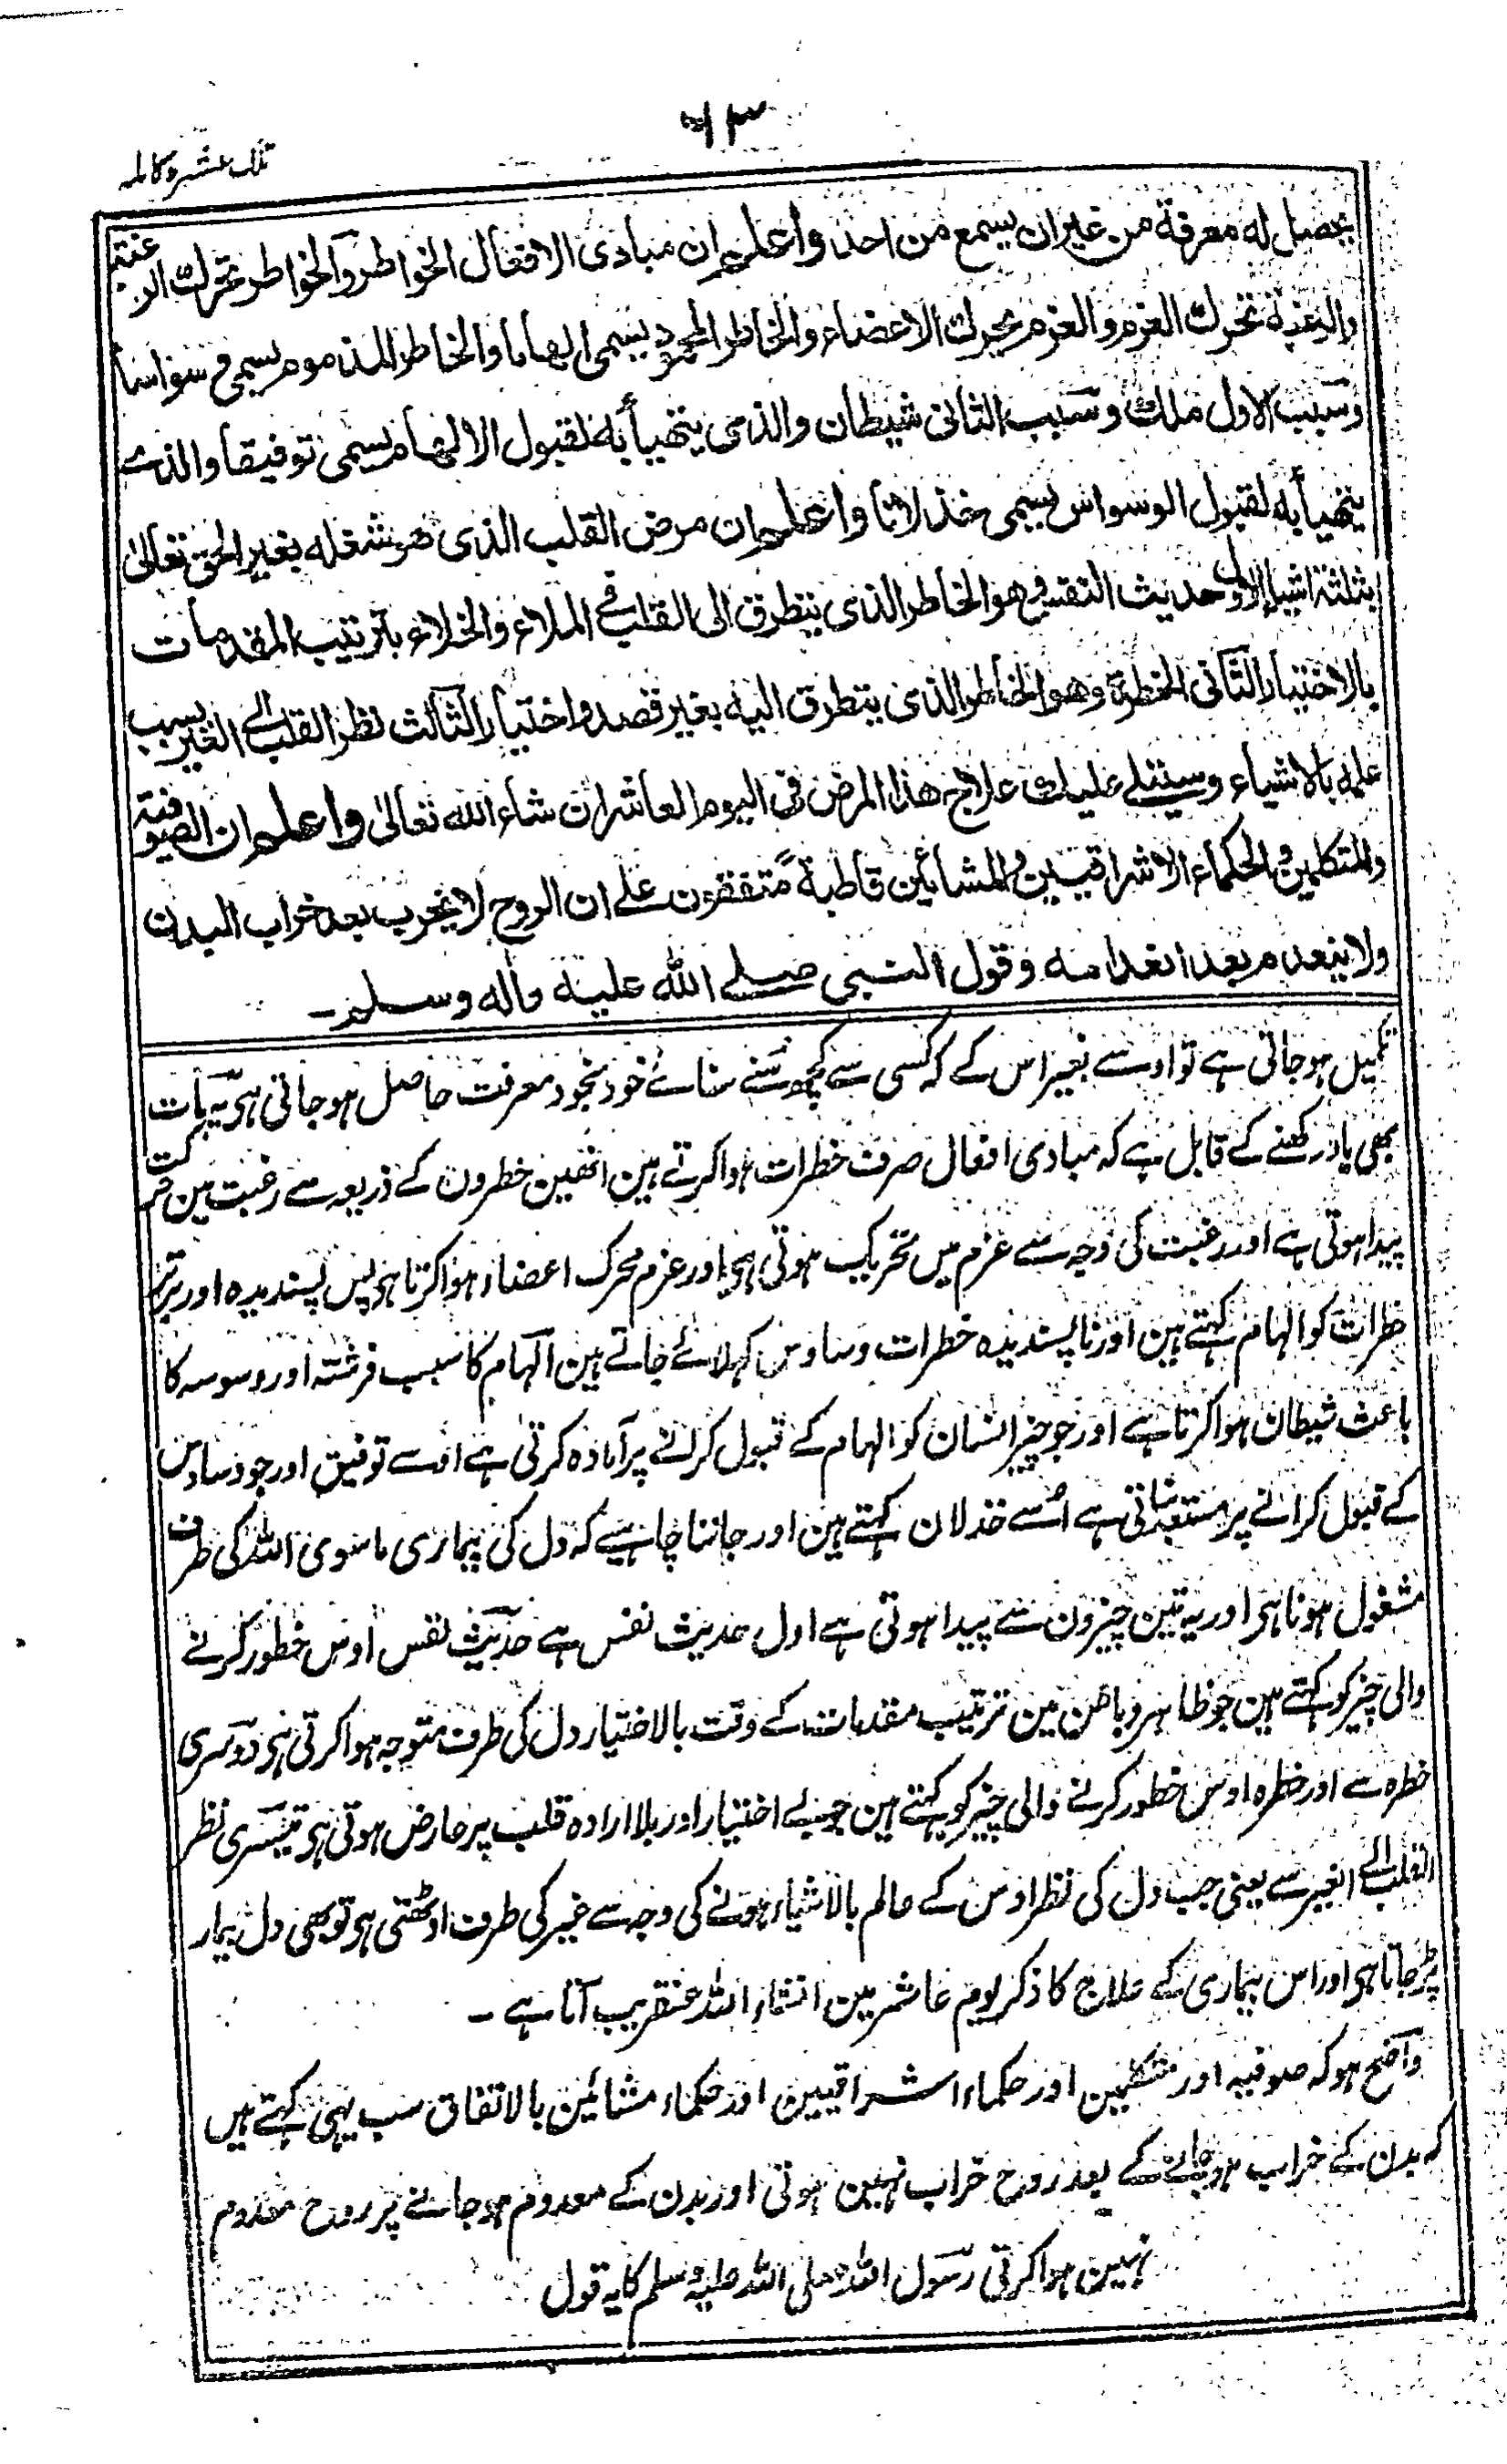 ٦٣
تلک عشرۃ کاملہ
یحصل لہ معرفۃ من غیر ان یسمع من احد واعلم ان مبادی الافعال الخواطر والخواطر تحرک الرغبۃ
والرغبۃ تحرک العزم والعزم یحرک الاعضاء والخاطر المحمود یسمی الھاما والخاطر المذموم یسمی وسواسا
وسبب الاول ملک وسبب الثانی شیطان والذی یتھیأ بہ لقبول الالھام یسمی توفیقا والذے
یتھیأ بہ لقبول الوسواس یسمی خذلانا واعلم ان مرض القلب الذی ھو شغلہ بغیر الحق تعالیٰ
بثلثۃ اشیاء الاول حدیث النفس وھو الخاطر الذی یتطرق الی القلب فی الملاء والخلاء بترتیب المقدمات
بالاختیار الثانی الخطرۃ وھو الخاطر الذی یتطرق الیہ بغیر قصد واختیار الثالث نظر القلب الے الغیر بسبب
علمہ بالاشیاء وسیتلے علیک علاج ھذا المرض فی الیوم العاشر ان شاء اللہ تعالیٰ واعلم ان الصوفیۃ
والمتکلمین والحکماء الاشراقیین والمشائین قاطبۃ متفقون علے ان الروح لا یخرب بعد خراب البدن
ولا ینعدم بعد انعدامہ وقول النبی صلے اللہ علیہ واٰلہ وسلم۔
تکمیل ہو جاتی ہے تو اوسے بغیر اس کے کہ کسی سے کچھ سُنے سنائے خود بخود معرفت حاصل ہو جاتی ہی یہ بات
بھی یاد رکھنے کے قابل ہے کہ مبادی افعال صرف خطرات ہوا کرتے ہین انھین خطرون کے ذریعہ سے رغبت مین حرکت
پیدا ہوتی ہے اور رغبت کی وجہ سے عزم میں تحریک ہوتی ہی اور عزم محرک اعضاء ہوا کرتا ہی پس پسندیدہ اور برتر
خطرات کو الہام کہتے ہین اور ناپسندیدہ خطرات وساوس کہلائے جاتے ہین الہام کا سبب فرشتہ اور وسوسہ کا
باعث شیطان ہوا کرتا ہے اور جو چیز انسان کو الہام کے قبول کرنے پر آمادہ کرتی ہے اوسے توفیق اور جو وساوس
کے قبول کرانے پر مستعد بناتی ہے اُسے خذلان کہتے ہین اور جاننا چاہیے کہ دل کی بیماری ماسوی اللہ کی طرف
مشغول ہونا ہی اور یہ تین چیزون سے پیدا ہوتی ہے اول حدیث نفس ہے حدیث نفس اوس خطور کرنے
والی چیز کو کہتے ہین جو ظاہر وباطن مین ترتیب مقدمات کے وقت بالاختیار دل کی طرف متوجہ ہوا کرتی ہی دوسری
خطرہ سے اور خطرہ اوس خطور کرنے والی چیز کو کہتے ہین جو بے اختیار اور بلا ارادہ قلب پر عارض ہوتی ہی تیسری نظر
القلب الے الغیر سے یعنی جب دل کی نظر اوس کے عالم بالاشیاء ہونے کی وجہ سے غیر کی طرف اوٹھتی ہی تو بھی دل بیمار
پڑ جاتا ہی اور اس بیماری کے علاج کا ذکر یوم عاشر مین انشاء اللہ عنقریب آتا ہے ۔
واضح ہو کہ صوفیہ اور متکلمین اور حکماء اشراقیین اور حکماء مشائین بالاتفاق سب یہی کہتے ہیں
کہ بدن کے خراب ہو جانے کے بعد روح خراب نہین ہوتی اور بدن کے معدوم ہو جانے پر روح معدوم
نہین ہوا کرتی رسول اللہ صلی اللہ علیہ وسلم کا یہ قول